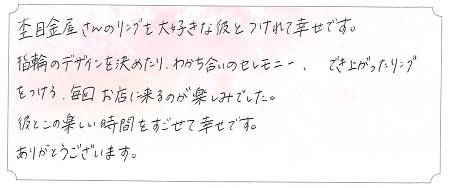 杢目金屋さんのリングを大好きな彼とつけれて幸せです。
指輪のデザインを決めたり、わかち合いのセレモニー、でき上がったリング
をつける、毎回お店に来るのが楽しみでした。
彼とこの楽しい時間をすごせて幸せです。
ありがとうございます。